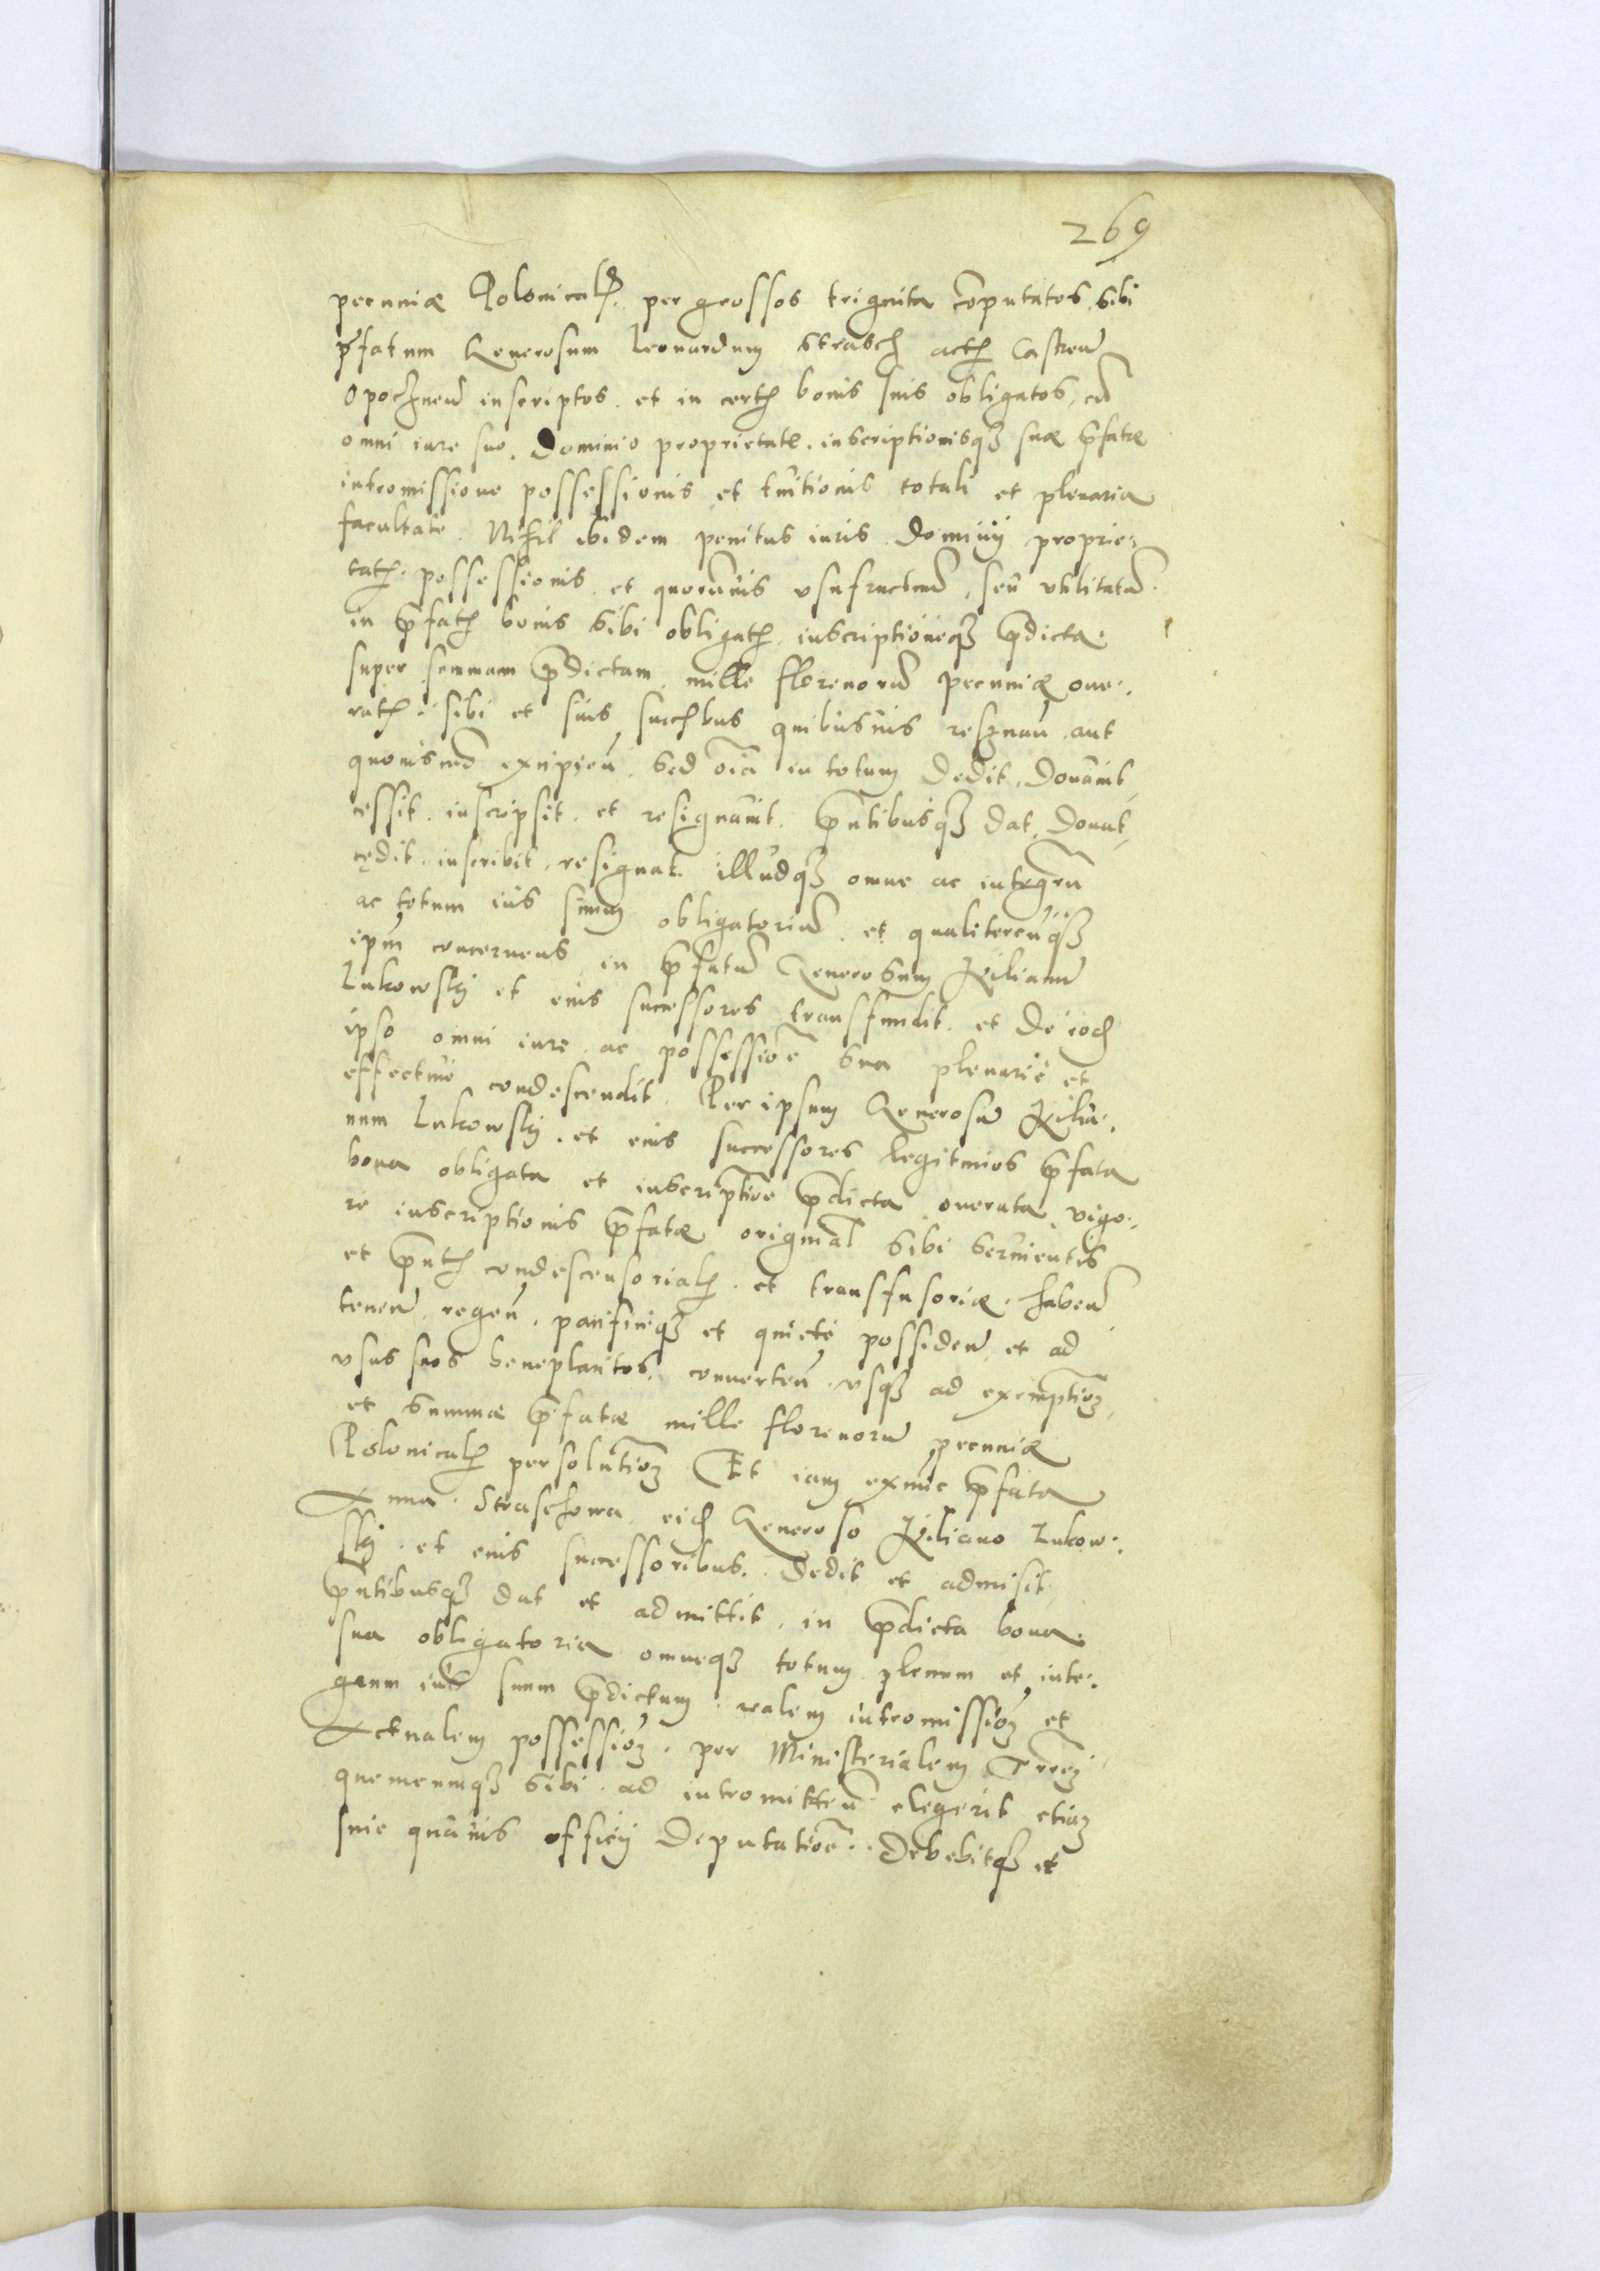 269
pecuniæ Polonicalis, per grossos triginta computatos, sibi
pfatum Generosum Leonardum Strasch actis Castren
Opocznen inscriptos, et in certis bonis suis obligatos, cū
omni iure suo, dominio proprietate, inscriptionisq3 suæ pfatæ
intromissione possessionis et tuitionis totali et plenaria
facultate. Nihil ibidem penitus iuris dominij proprie-
tatis, possessionis et quorumuis vsufructuū, seu vtilitatū
in pfatis bonis sibi obligatis, inscriptioneq3 pdicta
super summam pdictam, mille florenorū pecuniæ one-
ratis, sibi et suis succribus quibusuis reseruan, aut
quouismō excipien, sed oīa in totum dedit, donauit,
cessit, inscripsit, et resignauit, pntibusq3 dat, donat,
cedit, inscribit, resignat. illudq3 omne ac integrū
ac totum ius suum obligatoriū, et qualitercunq3
ipm concernens, in pfatū Generosum Kilianū
Lukowskj et eius successores transfundit, et de eodē
ipso omni iure, ac possessione sua plenarie et
effectiue condescendit. Per ipsum Generosū Kilia-
num Lukowskj, et eius successores legitimos pfata
bona obligata et inscriptione pdicta onerata, vigo-
re inscriptionis pfatæ original sibi seruientis
et pntis condescensorialis, et transfusoriæ, haben
tenen, regen, pacificeq3 et quiete possiden, et ad
vsus suos beneplacitos, conuerten, vsq3 ad exemptionē
et summæ pfatæ mille florenorū pecuniæ
Polonicalis persolutionē. Et iam exnunc pfata
Anna Straschowa, eidē Generoso Kiliano Lukow-
skj, et eius successoribus, dedit et admisit,
pntibusq3 dat et admittit, in pdicta bona
sua obligatoria omneq3 totum plenum et inte-
grum ius suum pdictum, realem intromissionē et
Actualem possessionē, per Ministerialem Terrē
quemcunq3 sibi ad intromitten elegerit etiam
sine quauis officij deputatione. Debebitq3 et